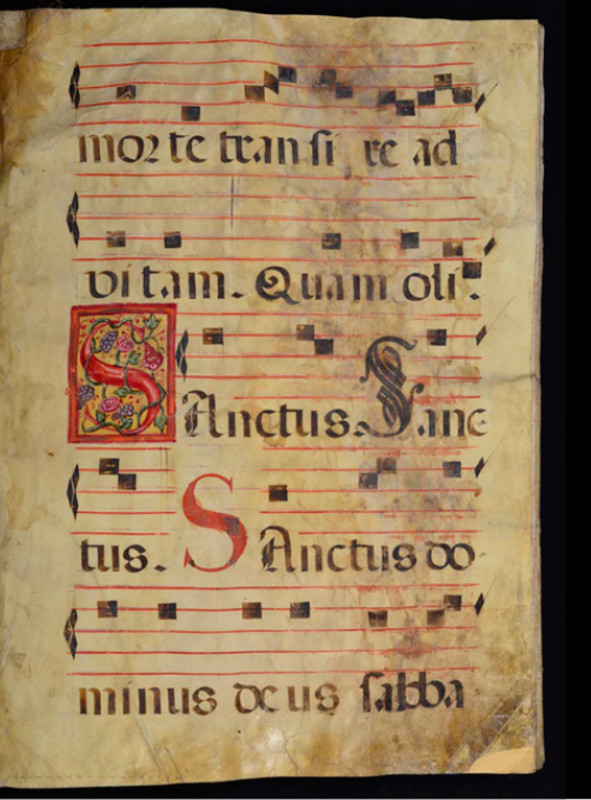 morte transire ad
vitam. Quam oli.
SAnctus. Sanc
tus. SAnctus do
minus deus sabba